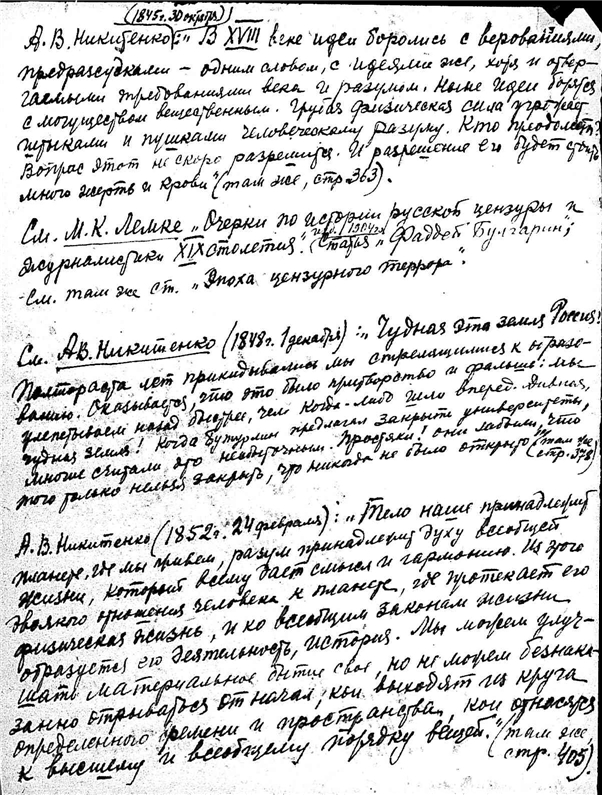 (1845г. 30 октября)
А.В. Никитенко: "В XVIII веке идеи боролись с верованиями,
предрассудками – одним словом, с идеями же, хотя и отвер-
гаемыми требованиями века и разумом. Ныне идеи борются
с могуществом вещественным. Грубая физическая сила угрожает
штыками и пушками человеческому разуму. Кто преодолеет?
Вопрос этот не скоро разрешится. И разрешение его будет стоить
много жертв и крови" (там же, стр. 363).
См. М.К. Лемке "Очерки по истории русской цензуры и
журналистики XIX столетия". 1904г. Статья "Фаддей Булгарин";
См. там же ст. "Эпоха цензурного террора".
См. А.В. Никитенко (1848г. 1 декабря): "Чудная эта земля Россия!
Полтораста лет прикидывались мы стремящимися к образо-
ванию. Оказывается, что это было притворство и фальшь: мы
улепетываем назад быстрее, чем когда-либо шли вперед. Дивная,
чудная земля! Когда Бутурлин предлагал закрыть университеты,
многие считали это невозможным. Простяки! они забыли, что
того только нельзя закрыть, что никогда не было открыто" (там же
А.В. Никитенко (1852г. 24 февраля): "Тело наше принадлежит
планете, где мы живем, разум принадлежит духу всеобщей
жизни, который всему дает смысл и гармонию. Из этого
двоякого отношения человека к планете, где протекает его
физическая жизнь, и ко всеобщим законам жизни
образуется его деятельность, история. Мы можем улуч-
шать материальное бытие свое, но не можем безнака-
занно отрываться от начал, кои выходят из круга
определенного времени и пространства, кои относятся
к высшему и всеобщему порядку вещей." (там же,
стр. 405).